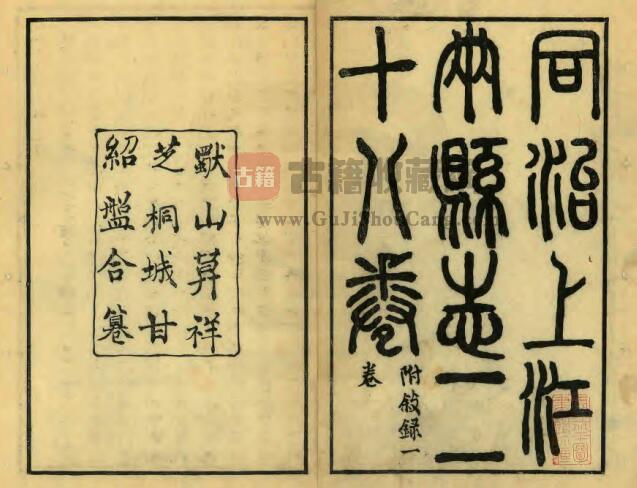 同治上江
兩縣志二
十八卷
附敘錄一
卷
獨山莫祥
芝桐城甘
紹盤合纂
古籍
古籍收藏
www.GuJiShouCang.com